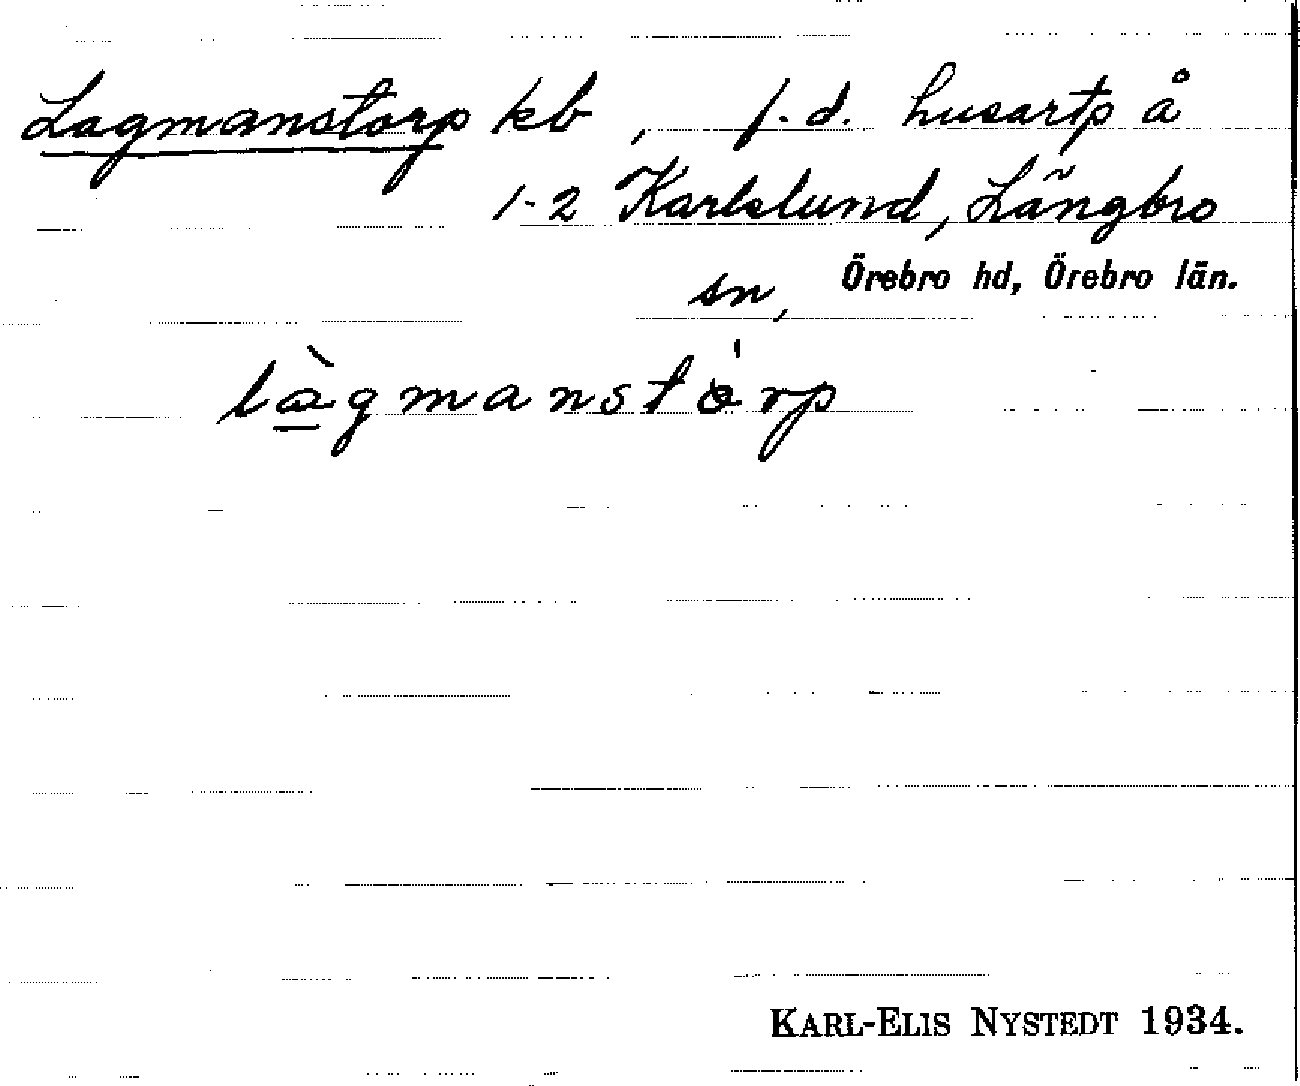 Lagmanstorp kb, f.d. husartp å
1-2 Karlslund, Längbro
sn, Örebro hd, Örebro län.
là̲gmanstórp
KARL-ELIS NYSTEDT 1934.